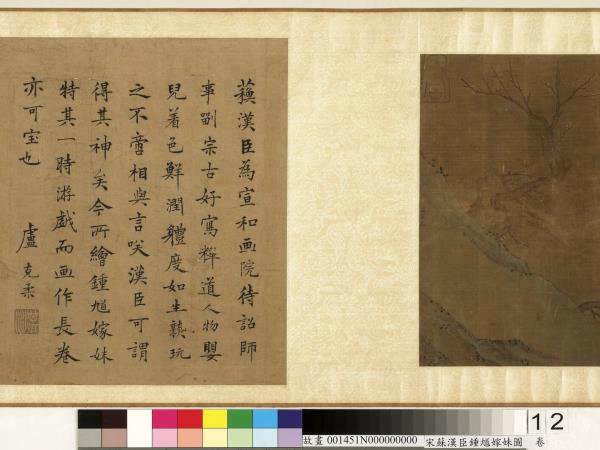 蘓漢臣為宣和画院待詔師
事劉宗古好寫釋道人物嬰
兒着色鮮潤體度如生熟玩
之不啻相與言咲漢臣可謂
得其神矣今所繪鍾馗嫁妹
特其一時游戲而画作長卷
亦可宝也
盧克柔
故畫 001451N000000000
宋蘇漢臣鍾馗嫁妹圖 卷
12